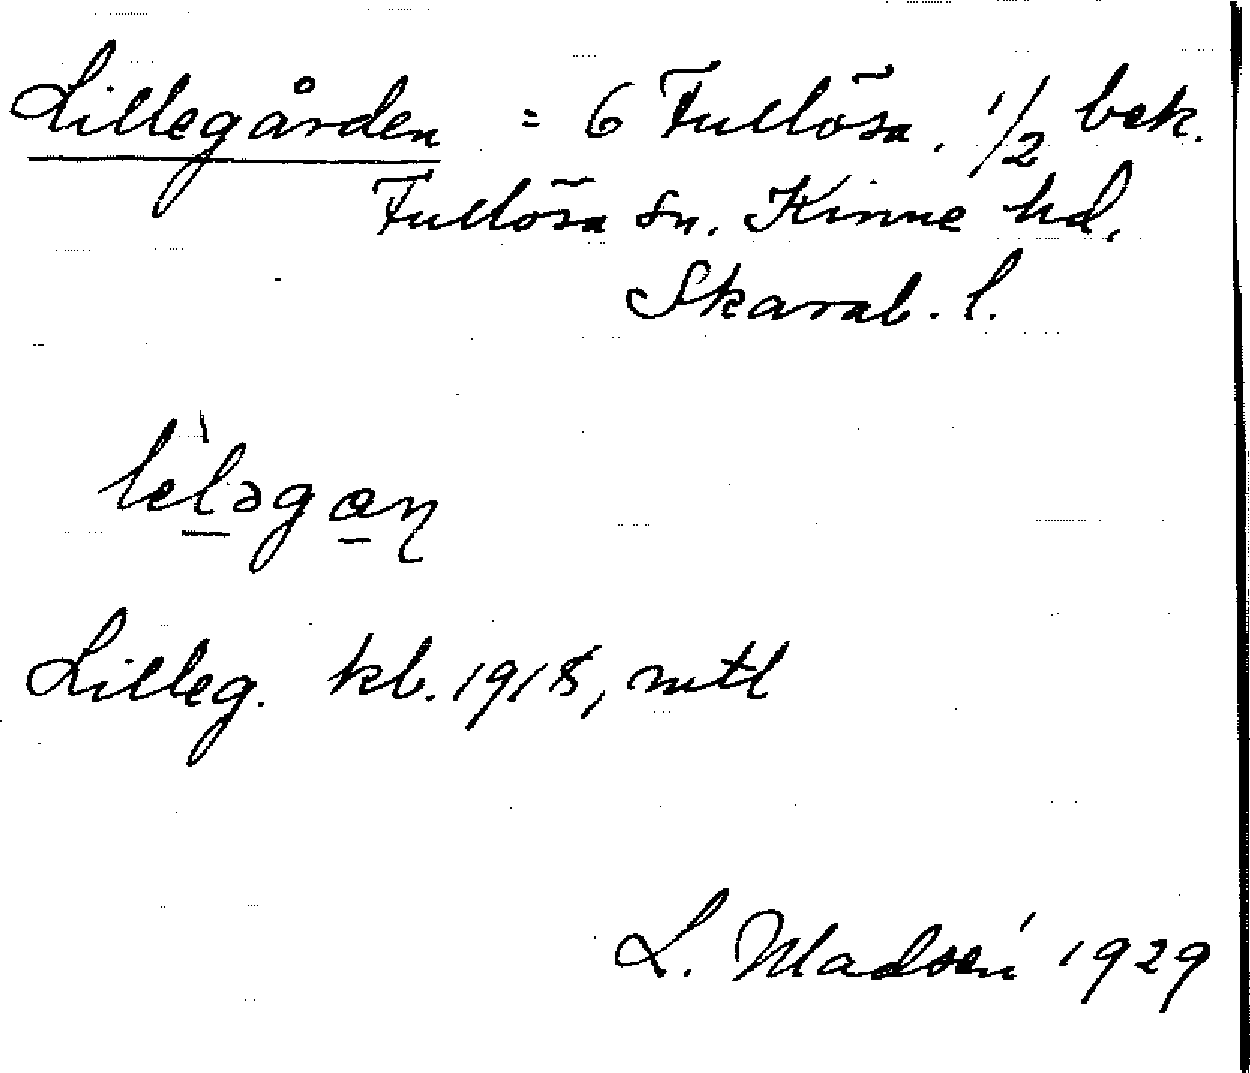 Lillegården = 6 Fullösa. 1/2 bek.
Fullösa sn. Kinne hd.
Skarab. l.
lèləgaɳ
Lilleg. kb. 1918, mtl
L. Madsén 1929